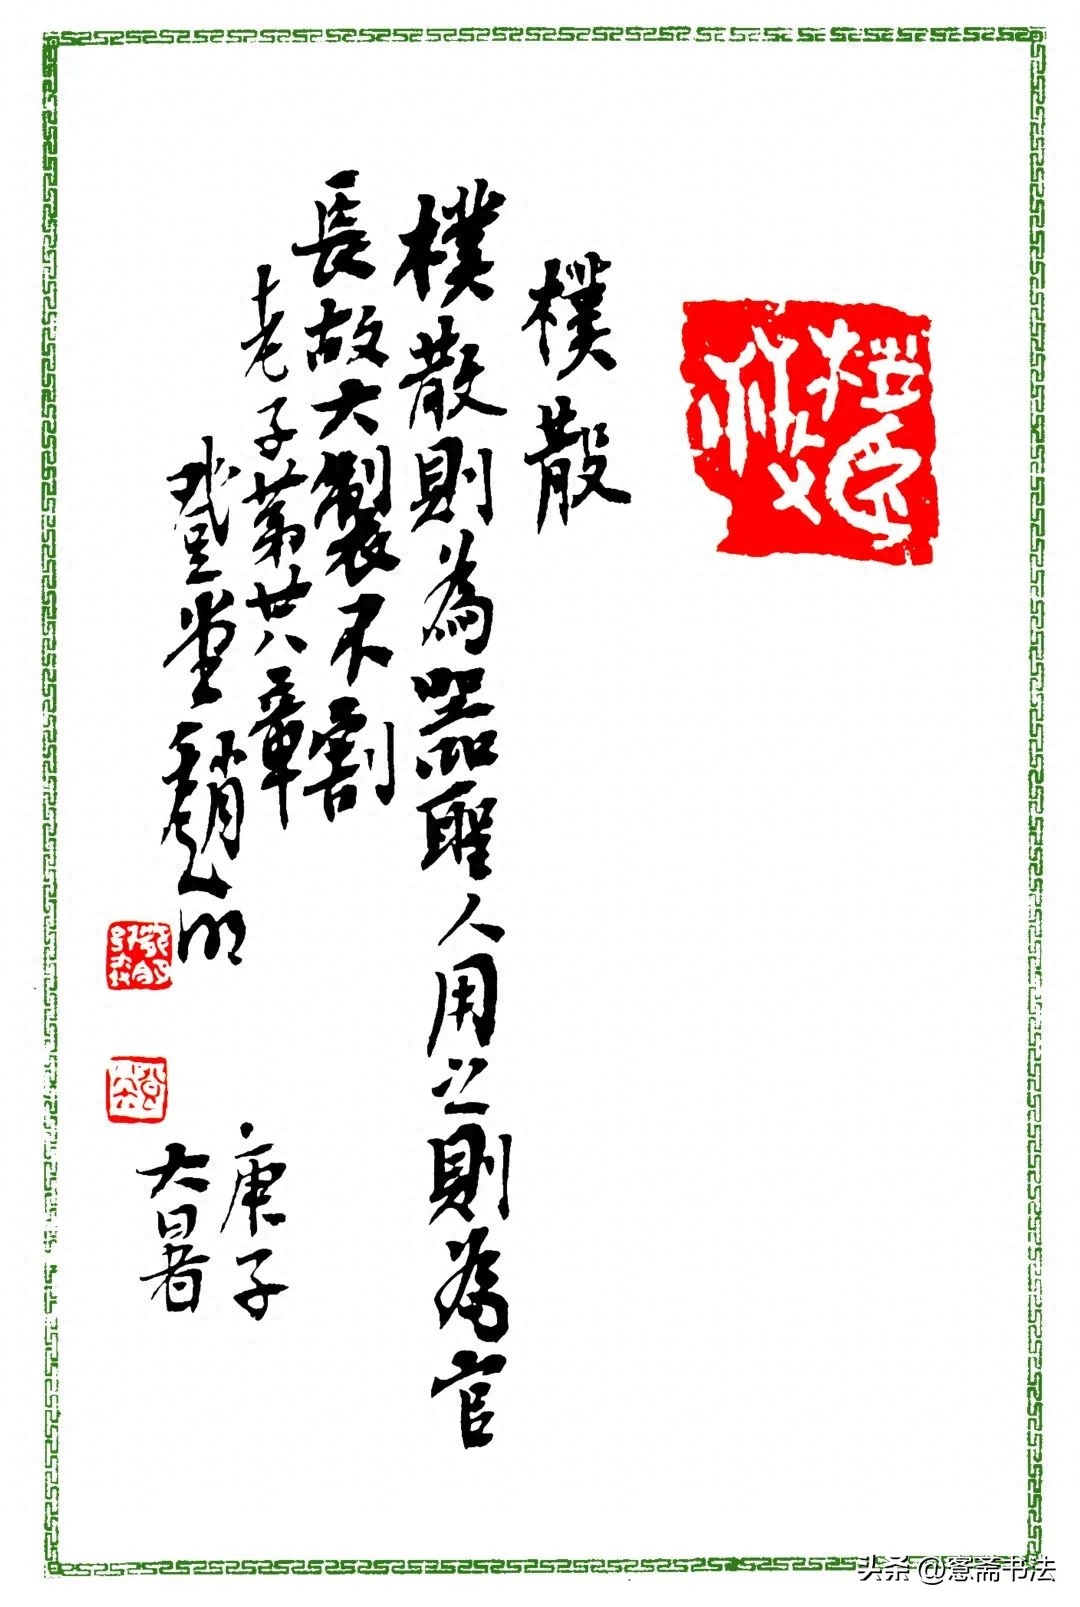 樸散
樸散則為器聖人用之則為官
長故大製不割
老子第廿八章
登堂趙明
庚子
大暑
头条 @窓斋书法